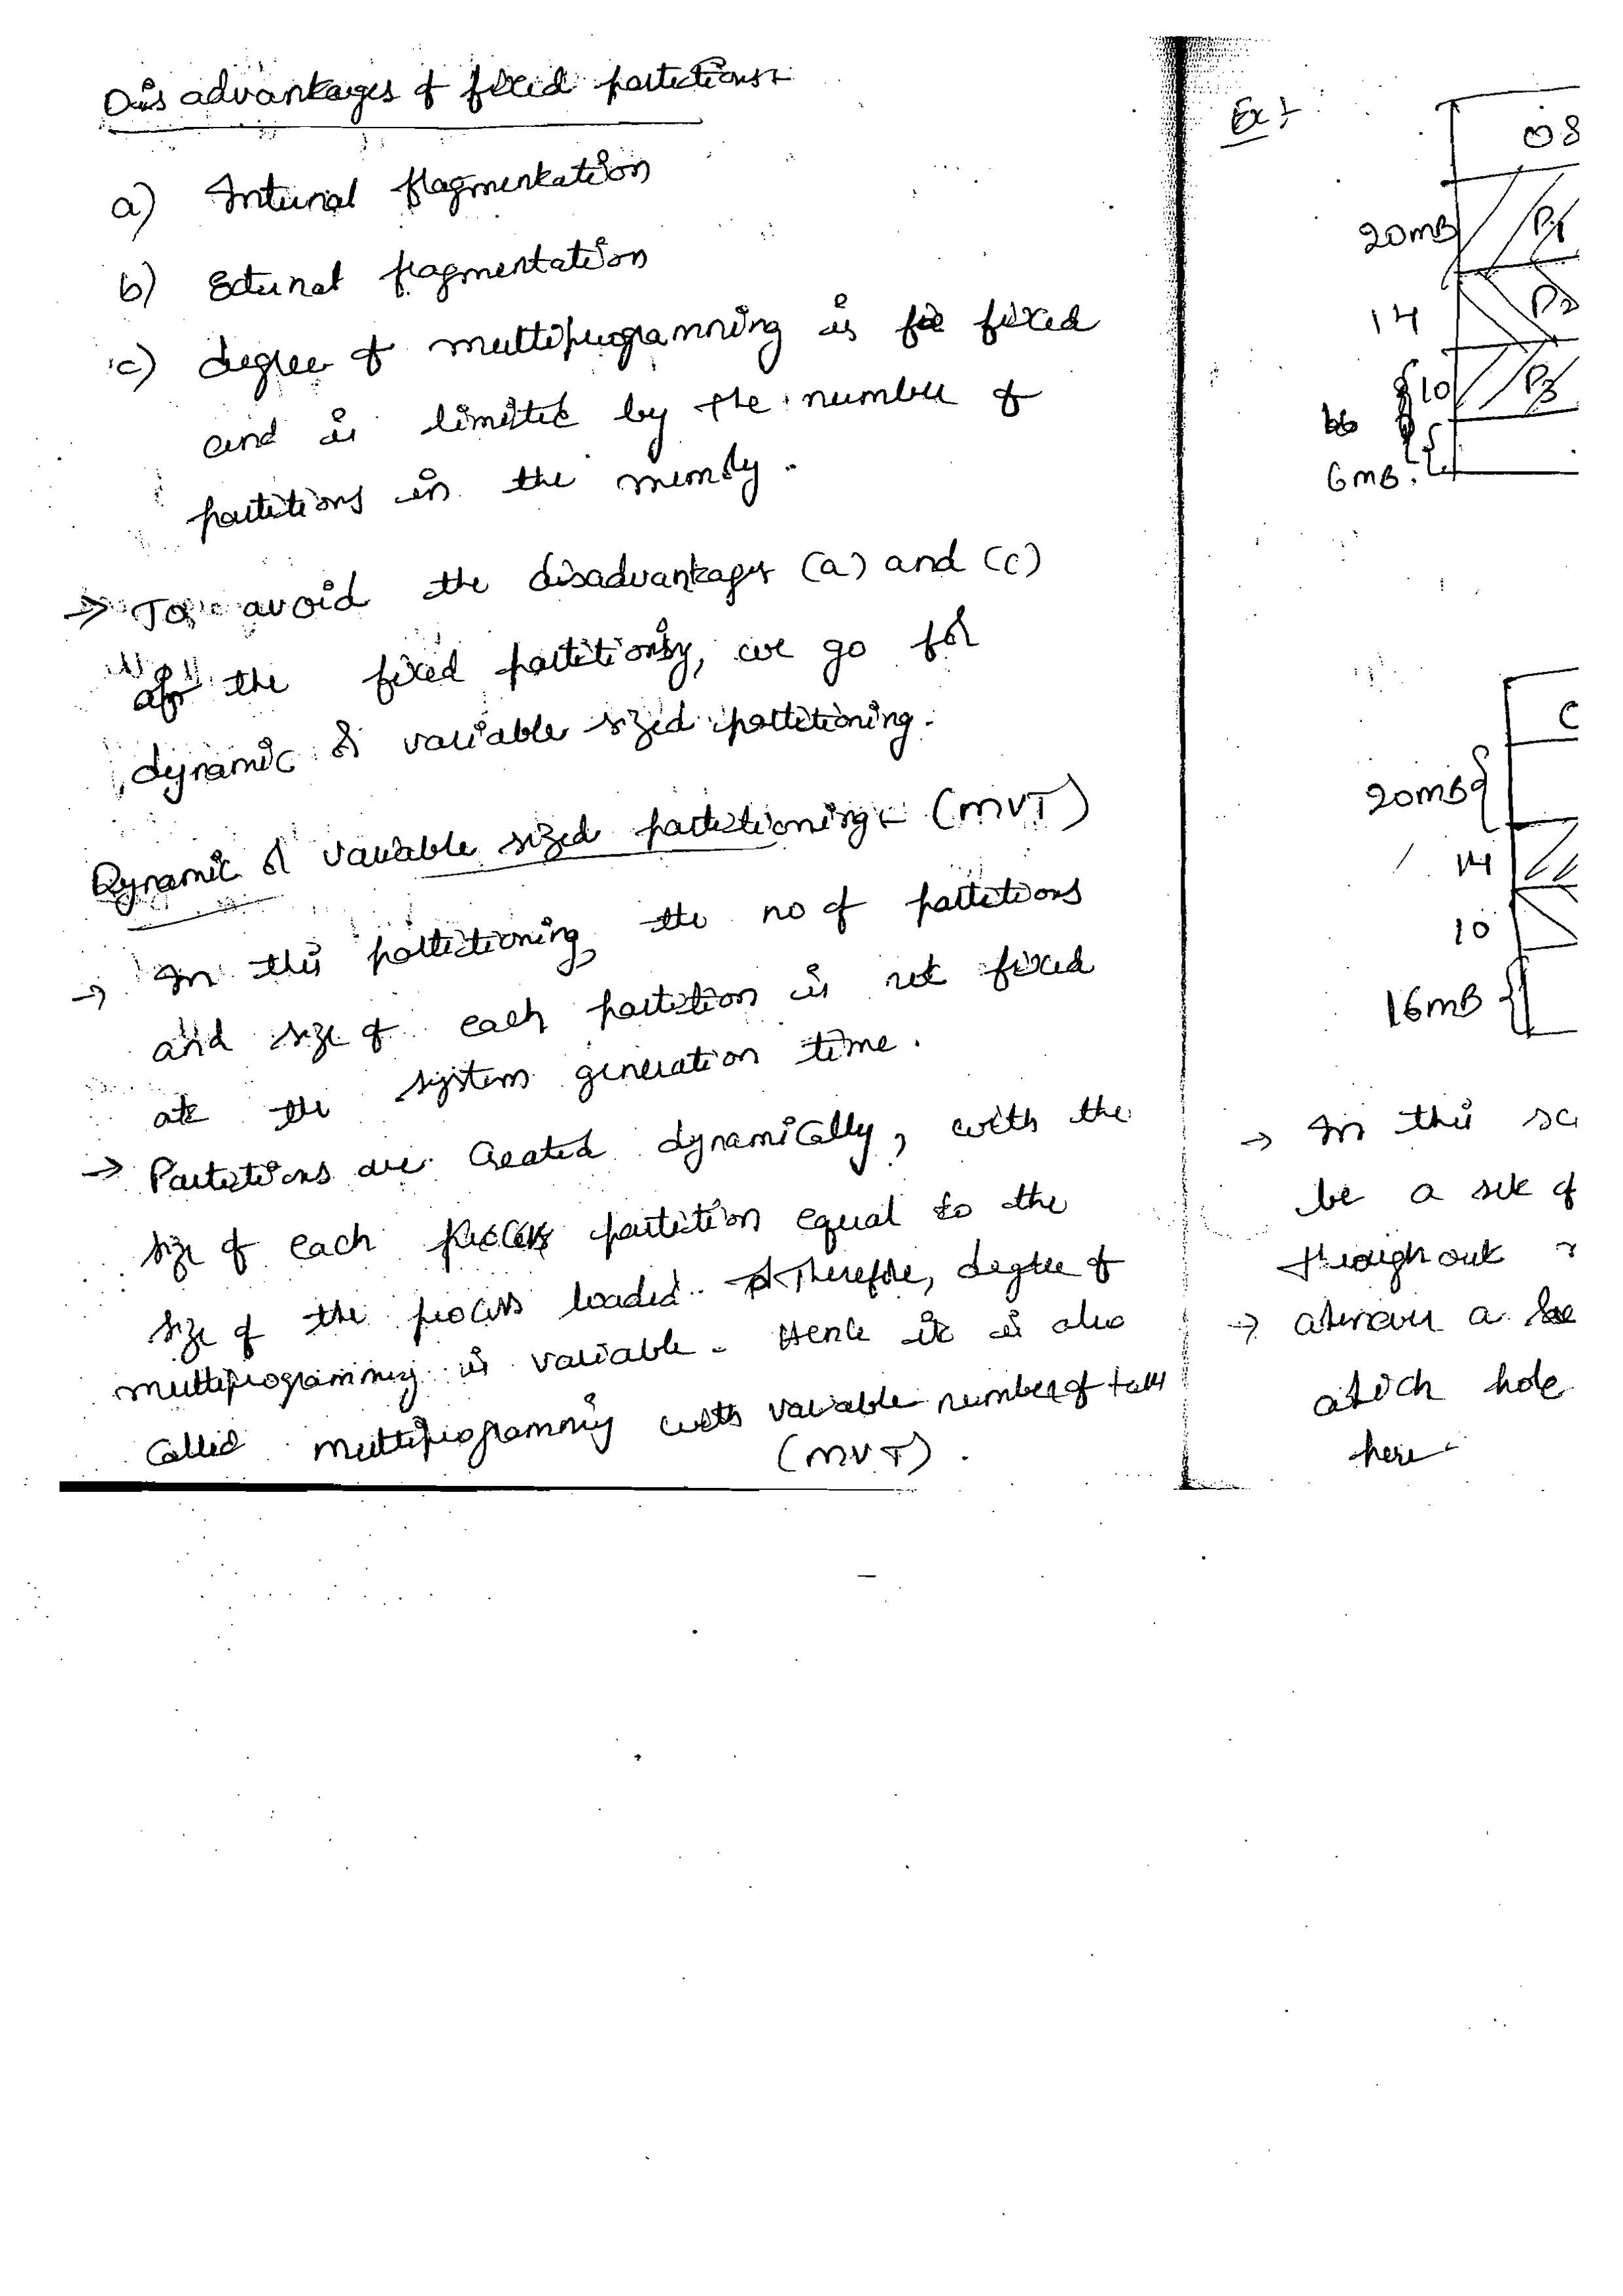 Disadvantages of fixed partitions:-
a) Internal fragmentation
b) External fragmentation
c) degree of multiprogramming is fixed
and is limited by the number of
partitions in the memory.
→ To avoid the disadvantages (a) and (c)
of the fixed partitions, we go for
dynamic or variable sized partitioning.
Dynamic or variable sized partitioning:- (MVT)
→ In this partitioning, the no of partitions
and size of each partition is not fixed
at the system generation time.
→ Partitions are created dynamically, with the
size of each partition equal to the
size of the process loaded. Therefore, degree of
multiprogramming is variable. Hence it is also
called multiprogramming with variable number of tasks
(MVT).
Ex:-
OS
20MB P1
14 P2
10 P3
6MB.
20MB
14
10
16MB
→ In this sc
be a set of
throughout
→ a
which hole
here